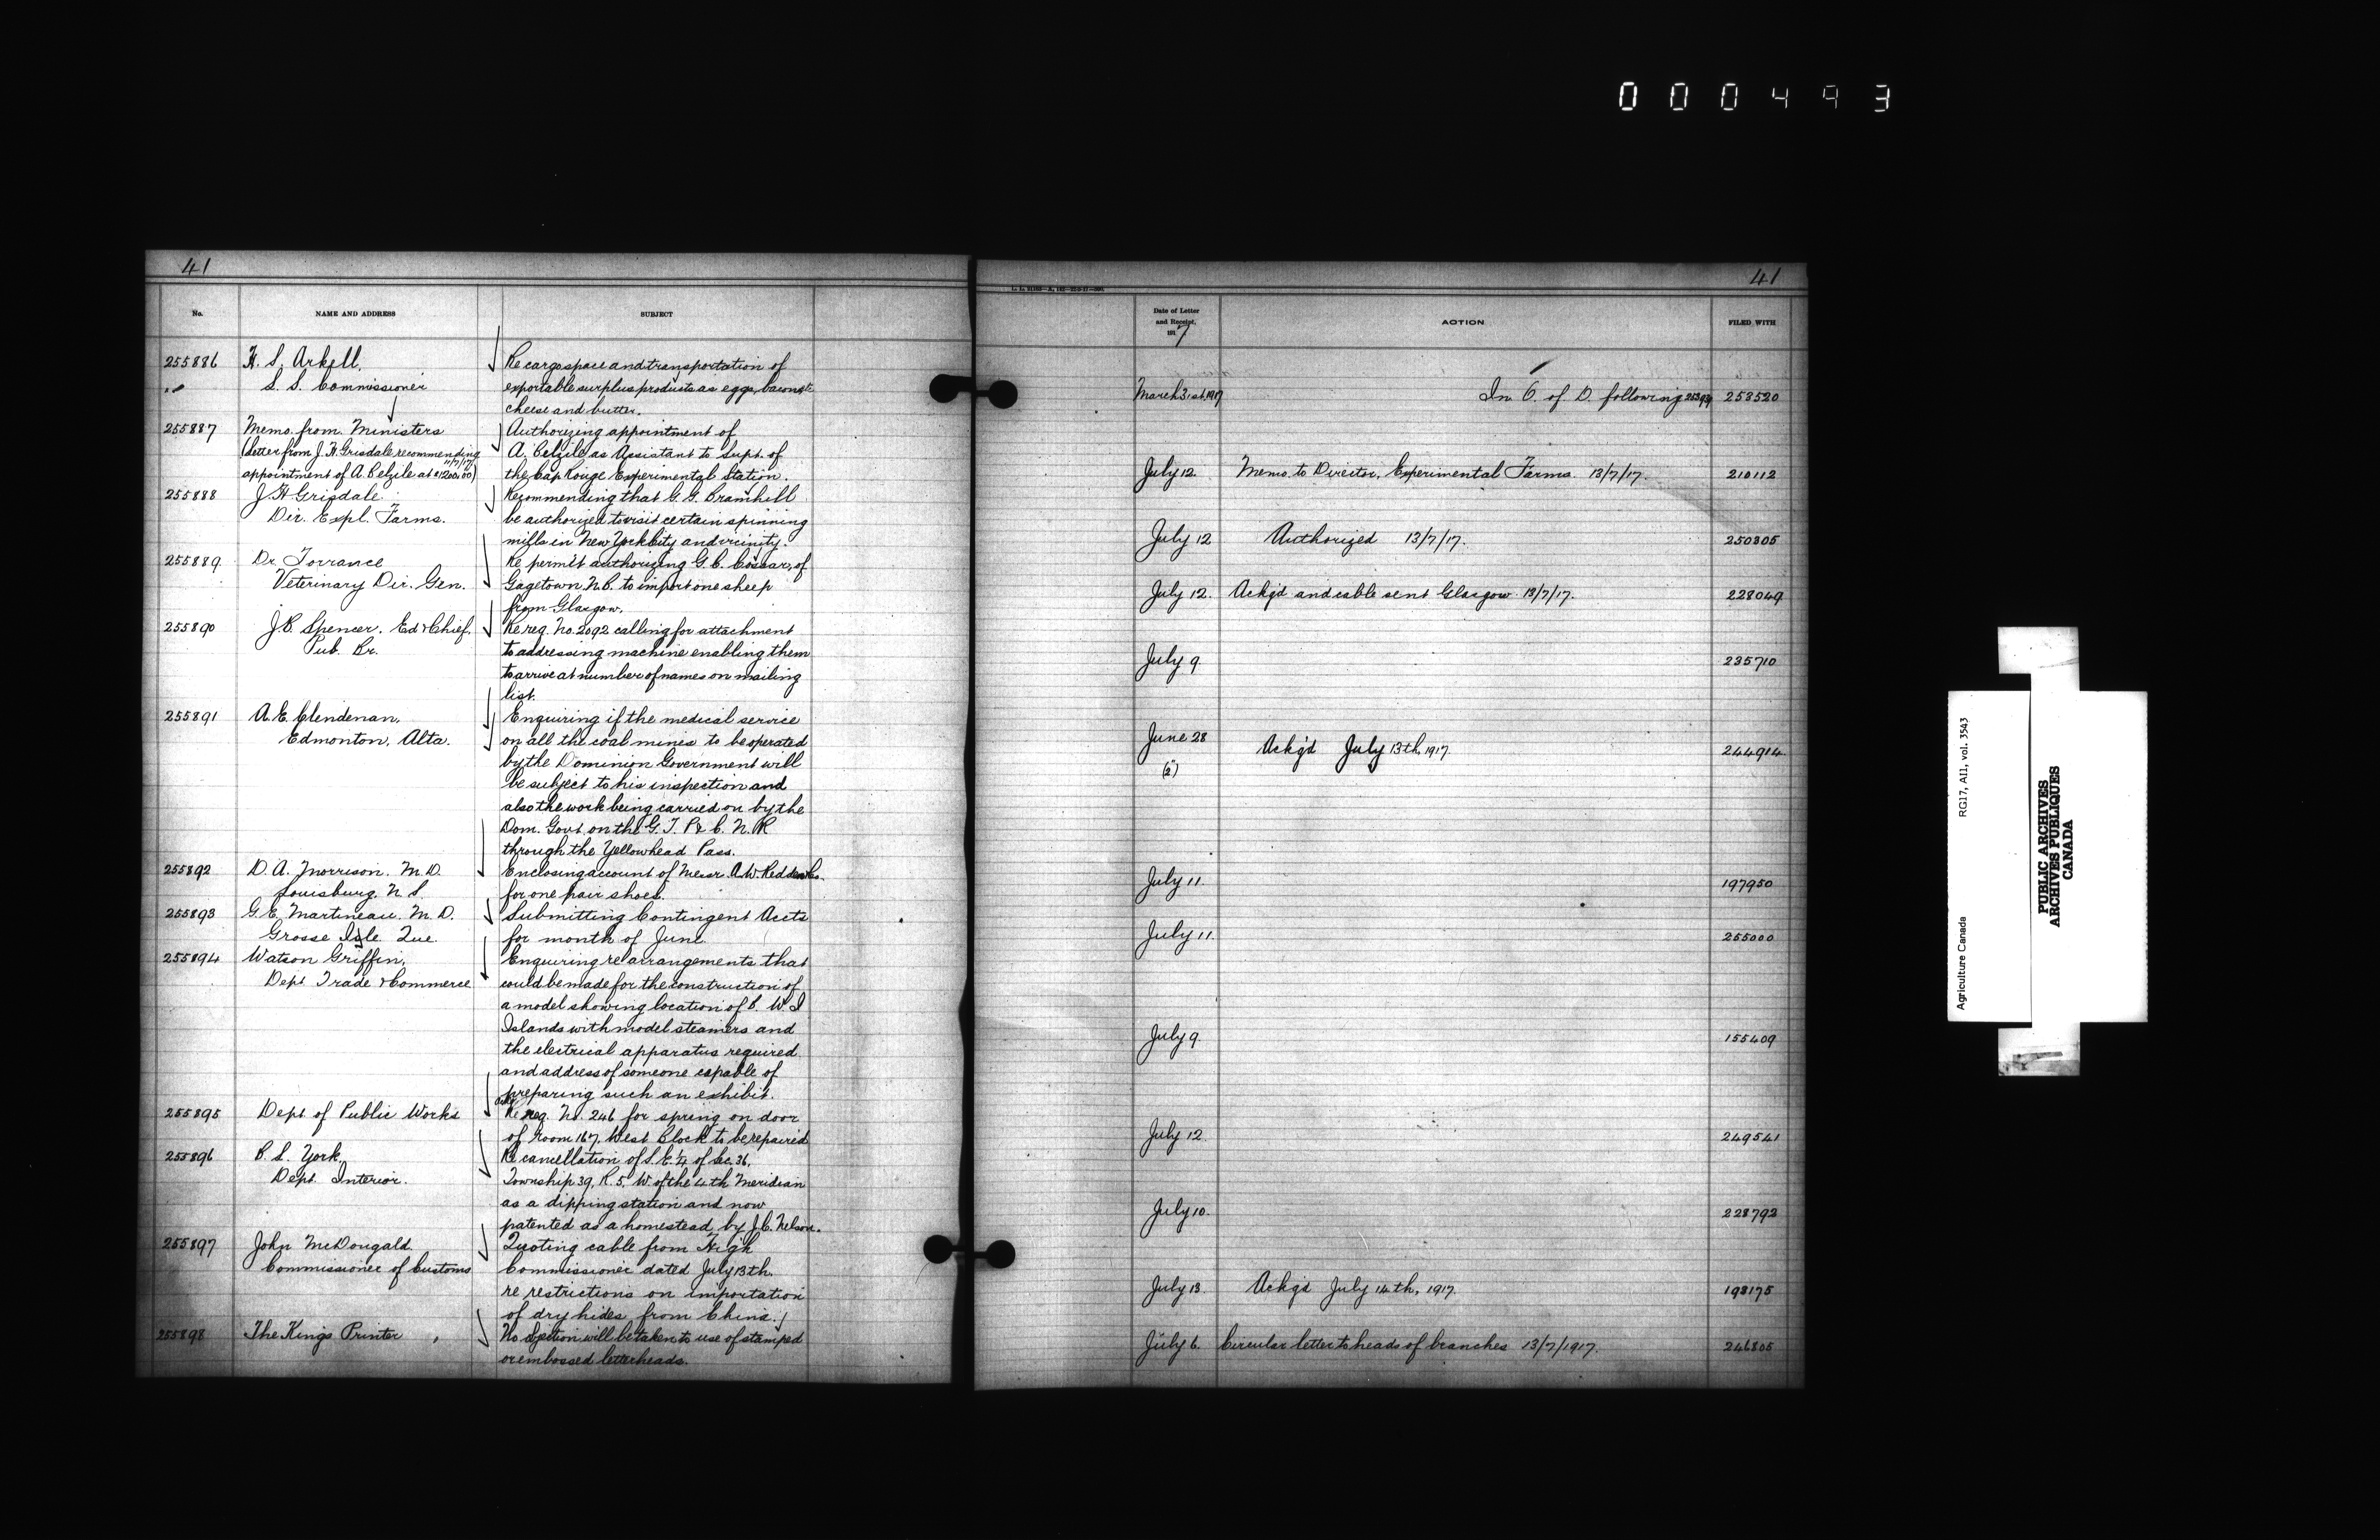 000493
41
No.
NAME AND ADDRESS
SUBJECT
255886
H. S. Arkell.
S. S. Commissioner
Re cargo space and transportation of
exportable surplus products as eggs, bacon,
cheese and butter.
255887
Memo. from Ministers
(Letter from J. H. Grisdale recommending
11/7/17
appointment of A. Belzile at $1200.00)
Authorizing appointment of
A. Belzile as Assistant to Supt. of
the Cap Rouge Experimental Station.
255888
J. H. Grisdale
Dir. Expl. Farms.
Recommending that G. G. Bramhill
be authorized to visit certain spinning
mills in New York City and vicinity.
255889
Dr. Torrance
Veterinary Dir. Gen.
Re permit authorizing G. C. Cossar, of
Gagetown N.B. to import one sheep
from Glasgow.
255890
J. B. Spencer. Ed & Chief.
Pub. Br.
Re req. No. 2092 calling for attachment
to addressing machine enabling them
to arrive at number of names on mailing
list.
255891
A. E. Clendenan,
Edmonton, Alta.
Enquiring if the medical service
on all the coal mines to be operated
by the Dominion Government will
be subject to his inspection and
also the work being carried on by the
Dom. Govt. on the G. T. P & C. N. R
through the Yellowhead Pass.
255892
D. A. Morrison. M. D.
Louisburg, N. S.
Enclosing account of Messr A. W.
for one pair shoes.
255893
G. E. Martineau. M. D.
Grosse Isle Que.
Submitting Contingent Accts
for month of June.
255894
Watson Griffin,
Dept Trade & Commerce
Enquiring re arrangements that
could be made for the construction of
a model showing location of B. W. I
Islands with model steamers and
the electrical apparatus required
and address of someone capable of
preparing such an exhibit.
255895
Dept of Public Works
Re req. No. 246 for spring on door
of Room 167, West Block to be repaired
255896
B. S. York.
Dept. Interior.
Re cancellation of S. E. 1/4 of Sec. 36,
Township 39, R. 5, W. of the 4th Meridian
as a dipping station and now
patented as a homestead by J. C. Nelson.
255897
John McDougald.
Commissioner of Customs
Quoting cable from High
Commissioner dated July 13th.
re restrictions on importation
of dry hides from China.
255898
The Kings Printer
No option will be taken to use of stamped
or embossed letterheads.
41
Date of Letter
and Receipt,
191 7
ACTION
FILED WITH
March 31st, 1917
In O. of D. following
253520
July 12
Memo. to Director, Experimental Farms. 13/7/17.
210112
July 12
Authorized 13/7/17.
250305
July 12.
Ackg'd and cable sent Glasgow 13/7/17.
228049
July 9
235710
June 28
(2)
Ackg'd July 13th, 1917.
244914
July 11.
197950
July 11.
255000
July 9
155409
July 12
249541
July 10.
228792
July 13
Ackg'd July 14th, 1917.
198175
July 6.
Circular letter to heads of branches 13/7/1917.
246805
Agriculture Canada
RG17, AII, vol. 3543
PUBLIC ARCHIVES
ARCHIVES PUBLIQUES
CANADA